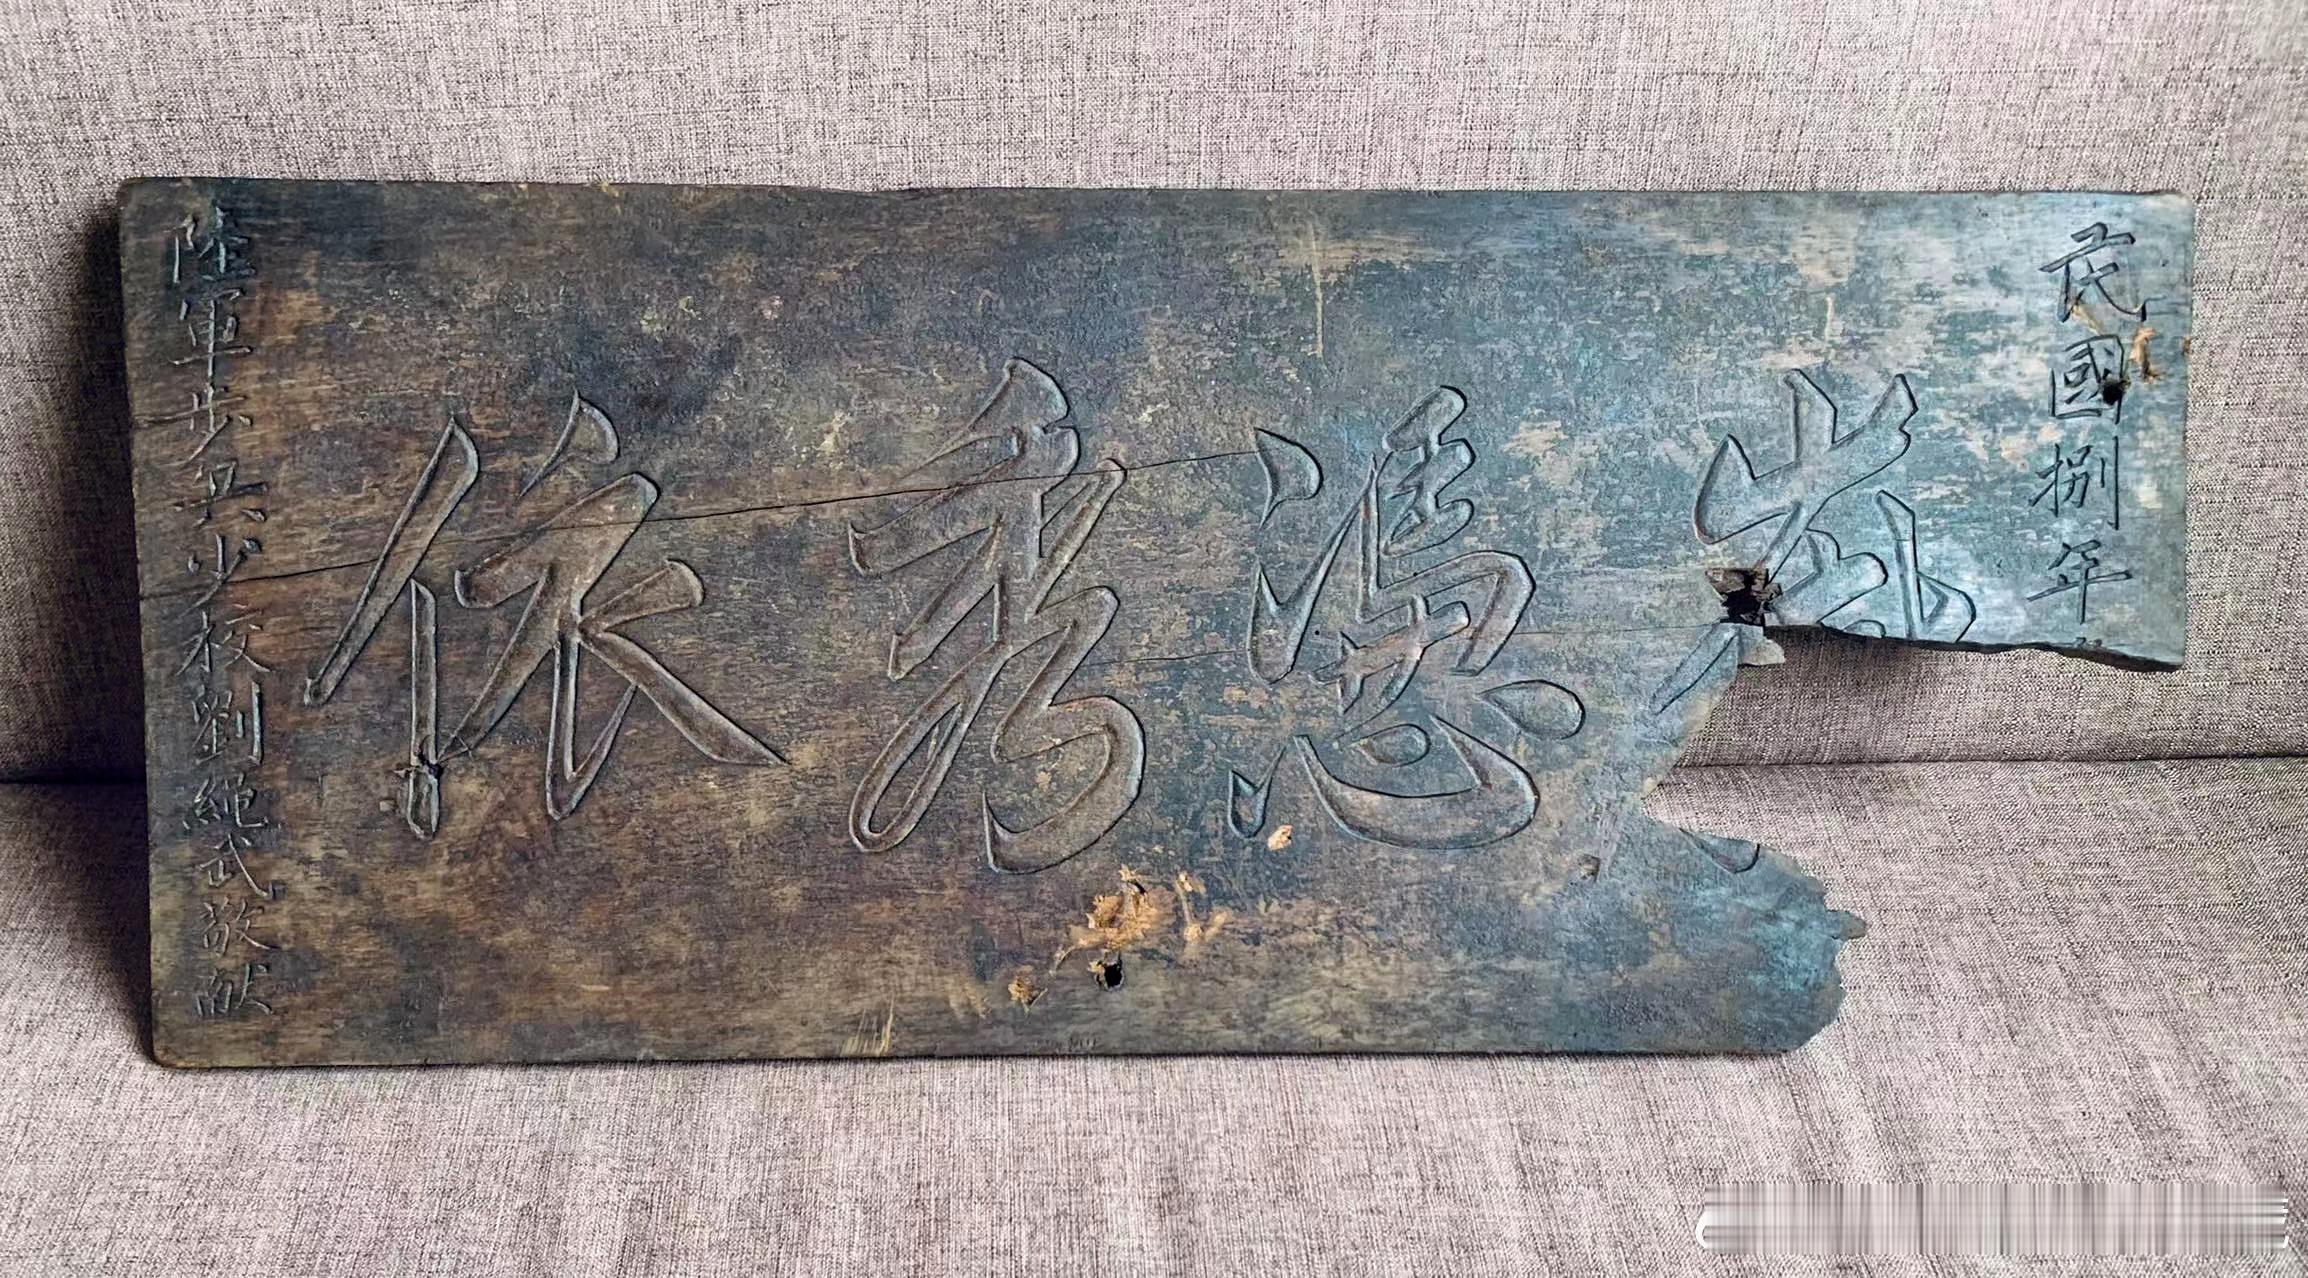 民國捌年
憑秀依
陸軍步兵少校劉繩武敬献